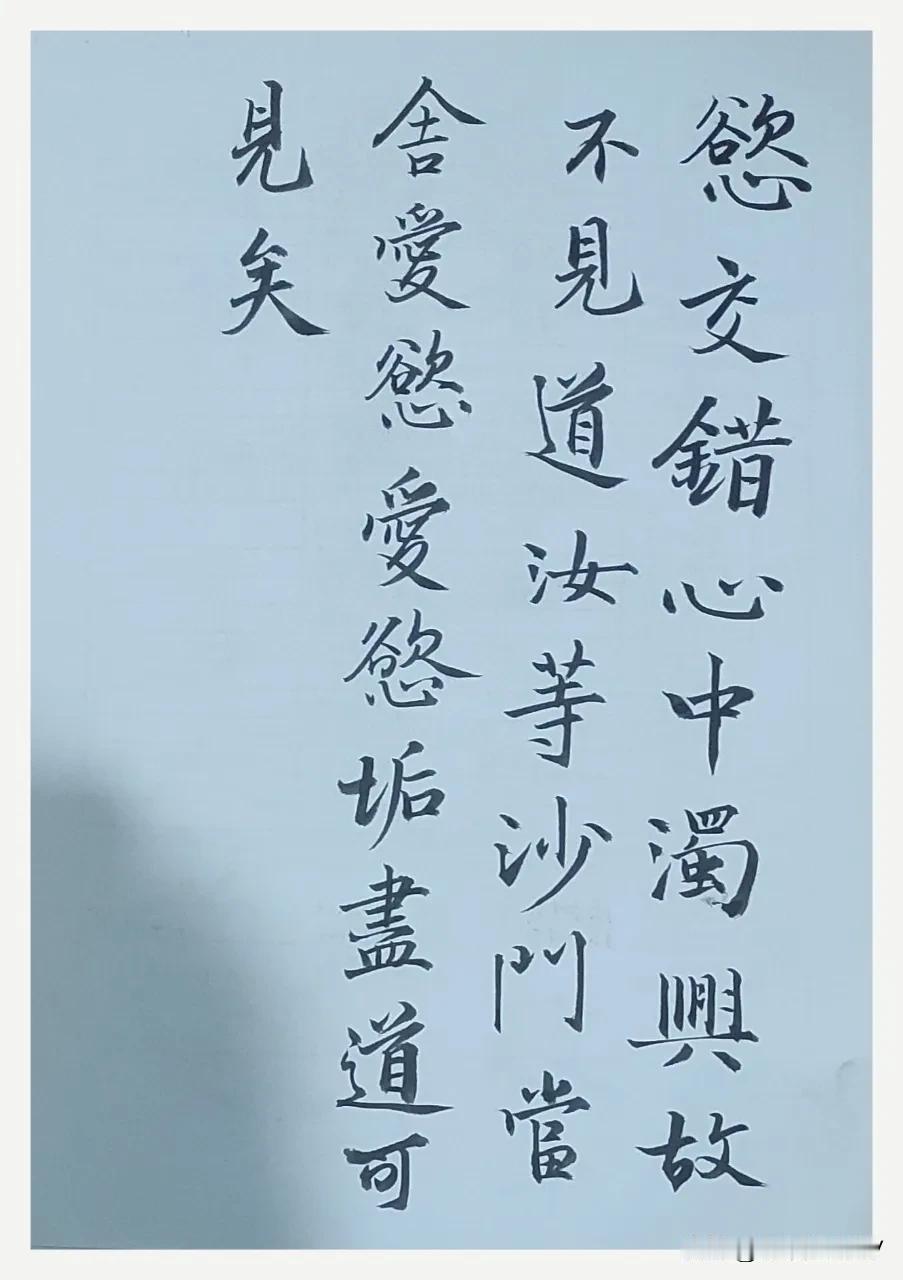 慾交錯心中濁興故
不見道汝等沙門當
舍愛慾愛慾垢盡道可
見矣